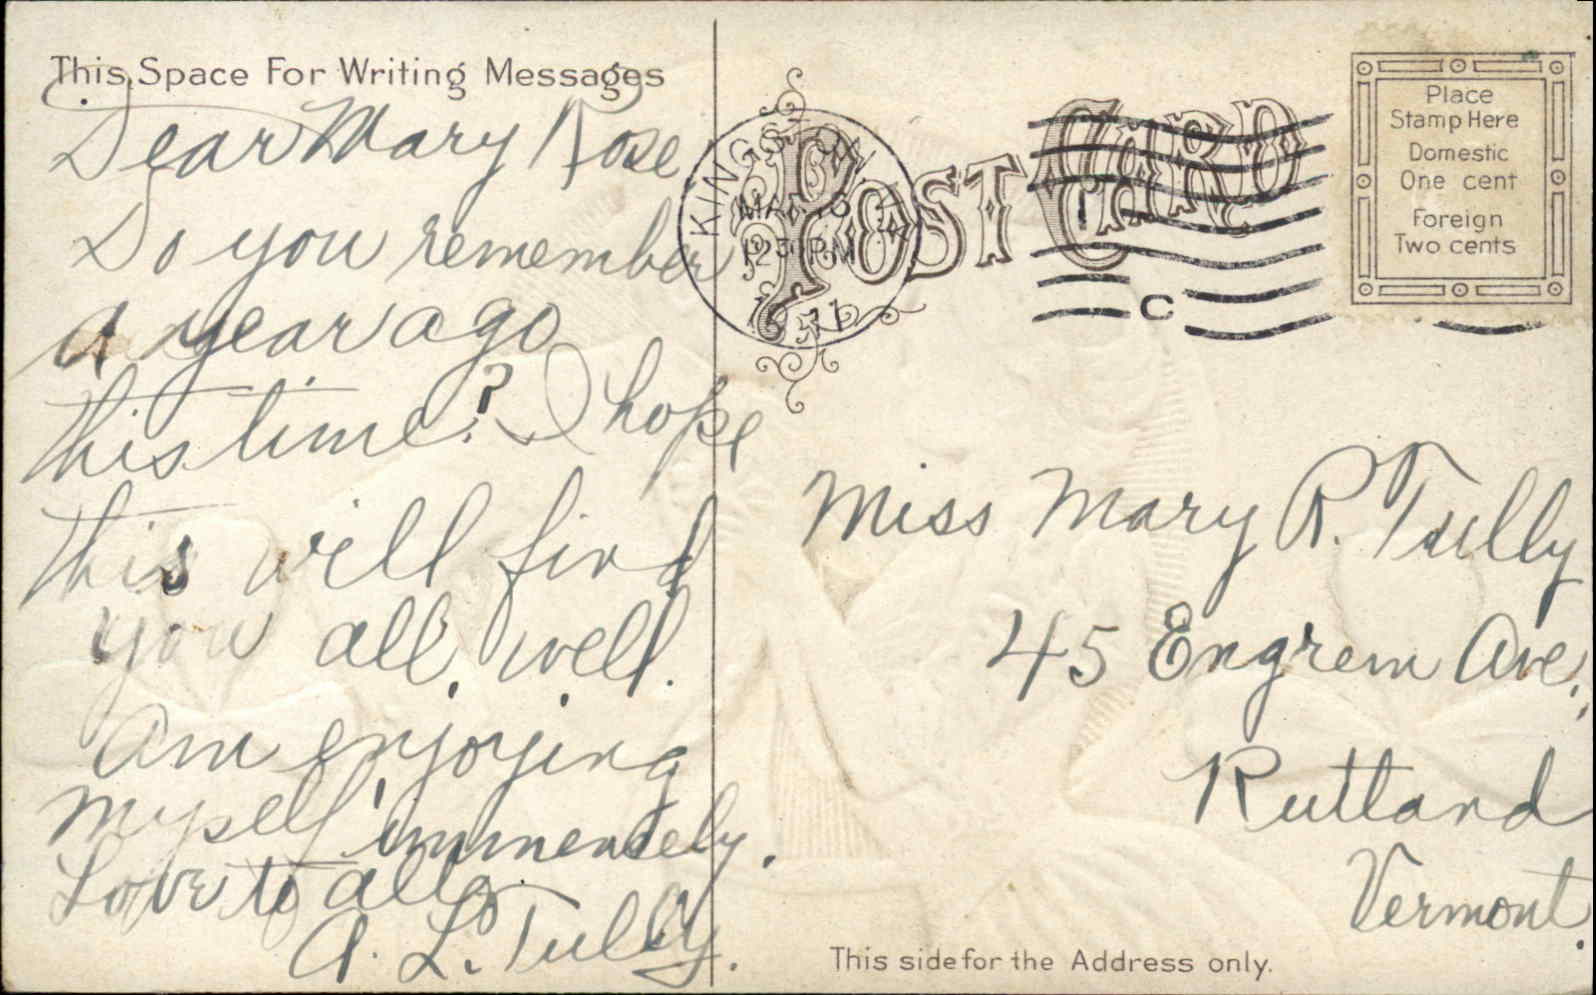 This Space For Writing Messages
Dear Mary Rose,
Do you remember
a year ago
this time? I hope
this will find
you all well.
Am enjoying
myself immensely.
Love to all.
A. L. Tully.
POST CARD
KINGSTON
MAR 16
1230 PM
1911
C
Place
Stamp Here
Domestic
One cent
Foreign
Two cents
Miss Mary R. Tully
45 Engrem Ave.,
Rutland
Vermont.
This side for the Address only.